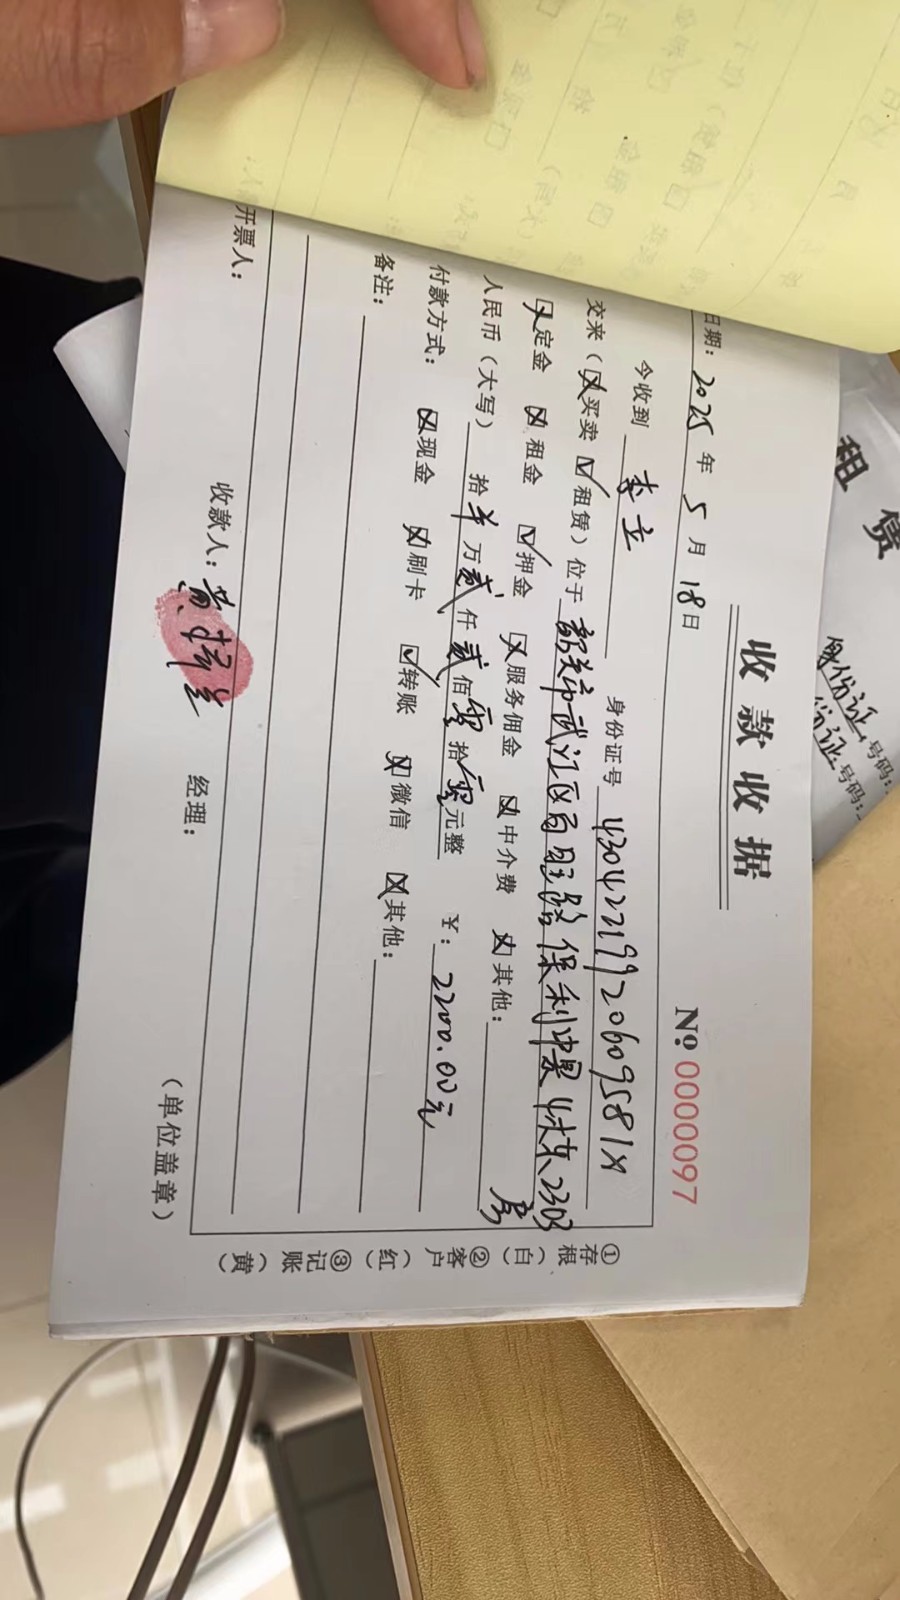 收款收据
№ 0000097
日期：2025 年 5 月 18 日
今收到 李立 身份证号 43042219920609581X
交来（☒买卖 ☑租赁）位于 韶关市武江区百旺路保利中景4栋2303
房
☒定金 ☒租金 ☑押金 ☒服务佣金 ☒中介费 ☒其他：
人民币（大写） 拾 万 贰 仟 贰 佰 零 拾 零 元整 ￥：2200.00元
付款方式： ☒现金 ☒刷卡 ☑转账 ☒微信 ☒其他：
备注：
开票人： 收款人： 黄 经理： （单位盖章）
①存根（白）②客户（红）③记账（黄）
租赁
身份证号码：
份证号码：